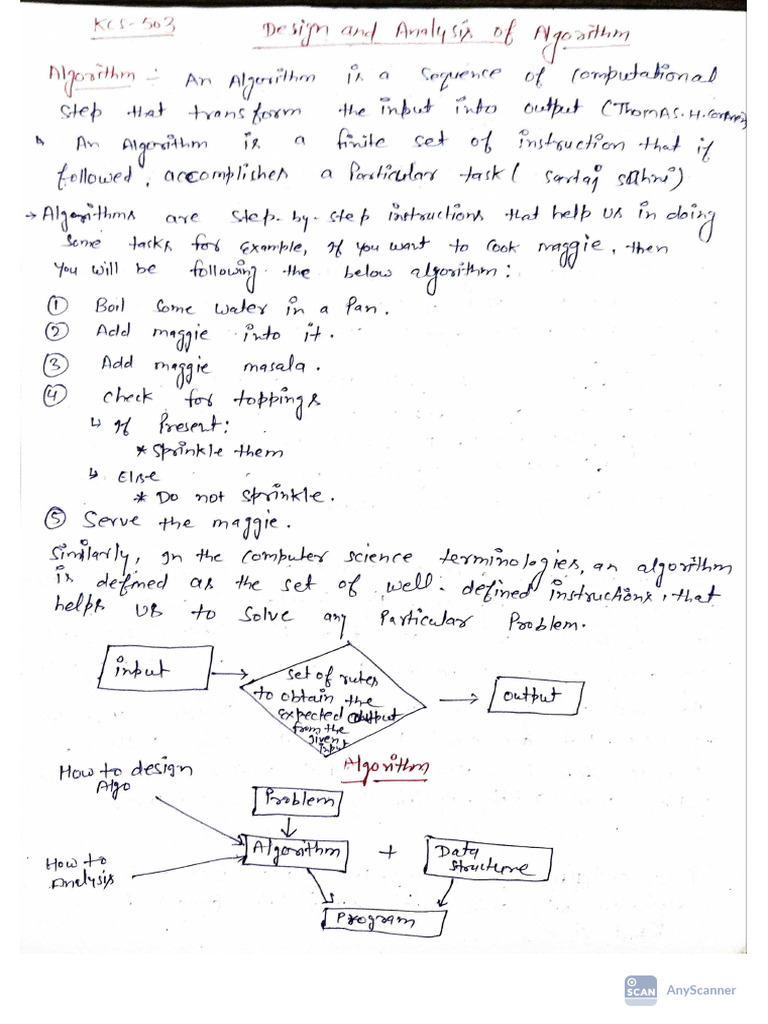 KCS-503 Design and Analysis of Algorithm
Algorithm :- An Algorithm is a sequence of computational
step that transform the input into output (Thomas. H. Cormen)
↳ An Algorithm is a finite set of instruction that if
followed, accomplishes a Particular task ( Sartaj Sahni)
→ Algorithms are step-by-step instructions that help us in doing
some tasks for Example, if you want to cook maggie, then
you will be following the below algorithm:
① Boil some water in a Pan.
② Add maggie into it.
③ Add maggie masala.
④ Check for toppings
↳ If Present:
* Sprinkle them
↳ Else
* Do not sprinkle.
⑤ Serve the maggie.
Similarly, In the computer science terminologies, an algorithm
is defined as the set of well-defined instructions, that
helps us to solve any Particular Problem.
input → set of rules → output
to obtain the
Expected output
from the
given
input
Algorithm
How to design
Algo
Problem
Algorithm + Data
Structure
How to
Analysis
Program
SCAN AnyScanner